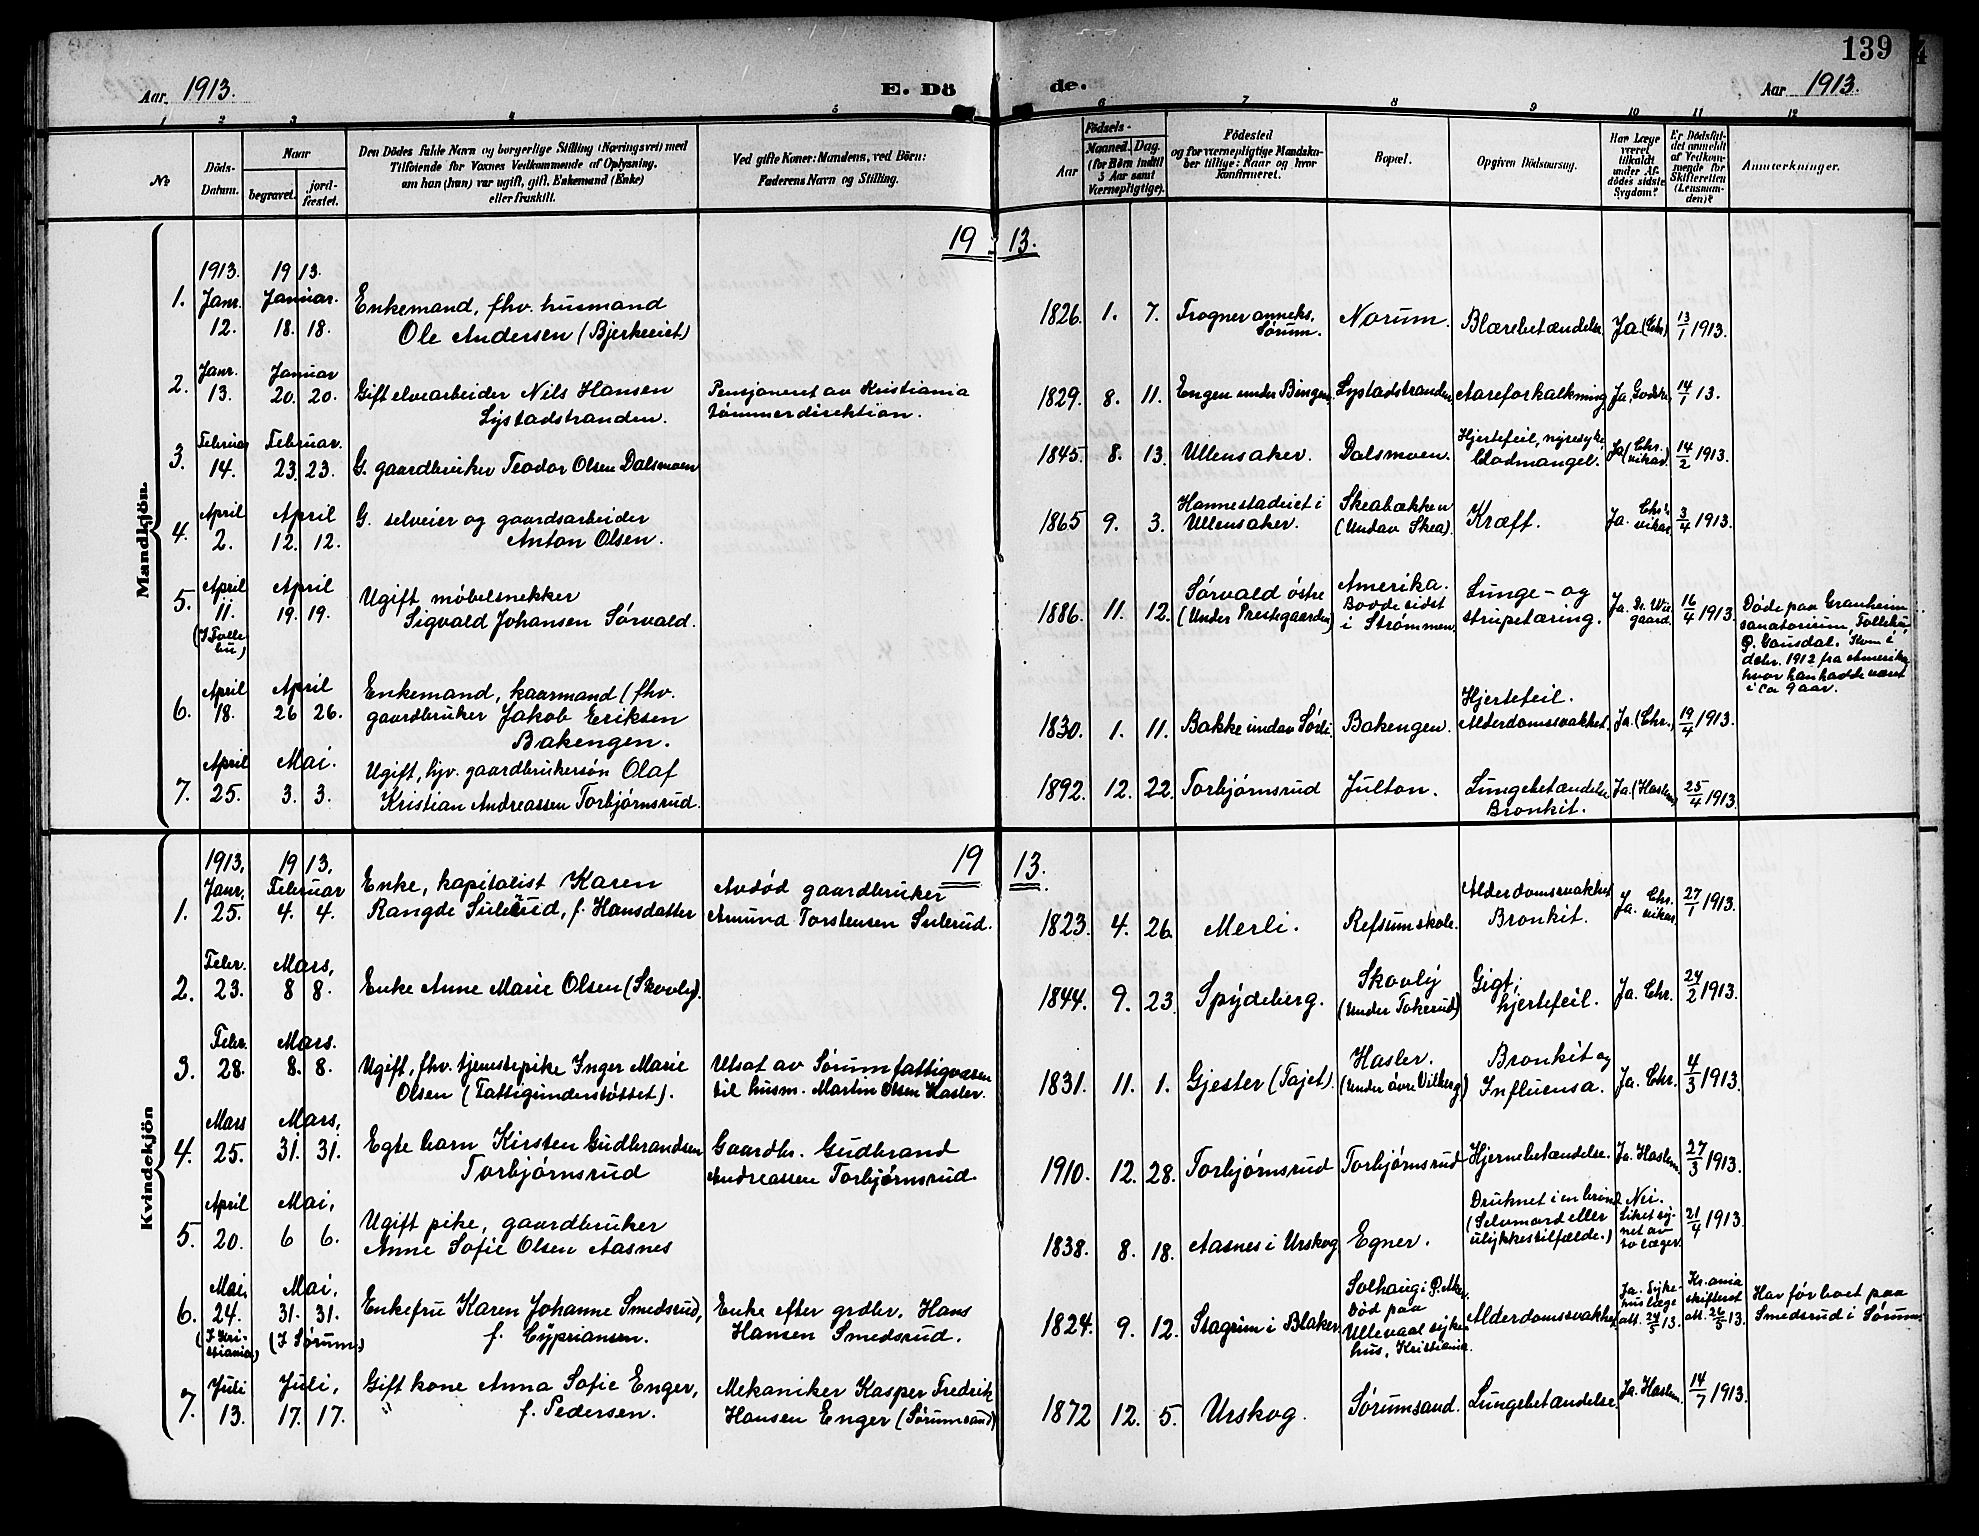 139
Aar 1913.
E. Dö
de.
Aar 1913.
1 2 3 4 5 6 7 8 9 10 11 12
№
Döds-
Datum.
Naar
begravet.
jord-
fæstet.
Den Dödes fulde Navn og borgerlige Stilling (Næringsvei) med
Tilföiende for Voxnes Vedkommende af Oplysning,
om han (hun) var ugift, gift, Enkemand (Enke)
eller fraskilt.
Ved gifte Koner: Mandens, ved Börn:
Faderens Navn og Stilling.
Födsels-
Aar
Maaned.
Dag.
(for Börn indtil
3 Aar samt
Værnepligtige).
Födested
og for værnepligtige Mandska-
ber tillige: Naar og hvor
konfirmeret.
Bopæl.
Opgiven Dödsaarsag.
Har Læge
været
tilkaldt
under Af-
dödes sidste
Sygdom?
Er Dödsfal-
det anmeldt
af Vedkom-
mende for
Skifteretten
(Lensman-
den)?
Anmærkninger.
Mandkjön.
19 13.
1913. 19 13.
1. Janr. 12. Januar. 18. 18.
Enkemand, fhv. husmand
Ole Andersen (Bjerkeeiet)
1826. 1. 7. Frogner anneks,
Sørum.
Norum. Blærebetændelse Ja (Chr.) 13/1 1913.
2. Janr. 13. Januar 20. 20.
Gift elvearbeider Nils Hansen
Lystadstranden.
Pensjoneret av Kristiania
tømmerdirektion.
1829. 8. 11. Engen under Bingen Lystadstranden Aareforkalkning Ja, 14/1 13.
3. Februar 14. Februar. 23. 23.
G. gaardbruker Teodor Olsen Dalsmoen
1845. 8. 13. Ullensaker. Dalsmoen. Hjertefeil, nyresyke,
blodmangel.
Ja (Chr.
vikar) 14/2 1913.
4. April 2. April 12. 12.
G. selveier og gaardsarbeider
Anton Olsen.
1865 9. 3. Hannestadeiet i
Ullensaker.
Skeabækken
(Undav Skea).
Kræft. Ja. Chr.s
vikar. 3/4 1913.
5. April 11. (I Folle
bu) April 19. 19.
Ugift møbelsnekker
Sigvald Johansen Sørvald.
1886. 11. 12. Sørvald østre
(Under Prestegaarden)
Amerika.
Bodde sidst
i Strømmen.
Lunge- og
strupetæring.
Ja. Dr. 16/4 1913.
Døde paa Granheim
sanatorium, Follebu,
Ø. Gausdal. Kom i
debr. 1912 fra Amerika,
hvor han hadde været
i ca 9 aar.
6. April 18. April 26 26.
Enkemand, kaarmand (fhv.
gaardbruker Jakob Eriksen
Bakengen.
1830. 1. 11. Bakke undav Sørli. Bakengen. Hjertefeil.
Alderdomssvakhet. Ja. (Chr.) 19/4 1913.
7. April 25. Mai. 3. 3.
Ugift, hjv. gaardbrukersøn Olaf
Kristian Andreassen Torbjørnsrud.
1892. 12. 22. Torbjørnsrud Julton. Lungebetændelse
Bronkit.
Ja. (Haslem) 25/4 1913.
Kvindekjön
1913, 19 13. 19 13.
1. Janr. 25. Februar 4. 4.
Enke, kapitalist Karen
Rangde Sulerud, f. Hansdatter
Avdød gaardbruker
Amund Torstensen Sulerud.
1823. 4. 26. Merli. Refsumskole. Alderdomssvakhet
Bronkit.
Ja. Chr.
vikar. 27/1 1913.
2. Febr. 23. Mars, 8 8.
Enke Anne Marie Olsen (Skovly).
1844. 9. 23. Spydeberg. Skovly
(under Tokerud)
Gigt,
hjertefeil.
Ja. Chr. 24/2 1913.
3. Febr. 28. Mars. 8. 8.
Ugift, fhv. tjenestepike Inger Marie
Olsen (Fattigunderstøttet).
Utsat av Sørum fattigvæsen
til husm. Martin Olsen Hasler.
1831. 11. 1. Gjester (Fajet). Hasler.
(Under øvre Vilberg)
Bronkit og
Influensa.
Ja. Chr. 4/3 1913.
4. Mars 25. Mars, 31. 31.
Egte barn Kirsten Gudbrandsen
Torbjørnsrud
Gaardbr. Gudbrand
Andreassen Torbjørnsrud.
1910. 12. 28. Torbjørnsrud Torbjørnsrud Hjernebetændelse. Ja. Haslem 27/3 1913.
5. April 20. Mai, 6 6.
Ugift pike, gaardbruker
Anne Sofie Olsen Aasnes
1838. 8. 18. Aasnes i Urskog Egner. Druknet i en brønd
(Selvmord eller
ulykkestilfælde.)
Nei.
Liket sy-
net av
to læger. 21/4 1913.
6. Mai, 24. (I Kri-
stiania) Mai, 31. 31. (I Sørum.)
Enkefru Karen Johanne Smedsrud,
f. Cypriansen.
Enke efter grdbr. Hans
Hansen Smedsrud.
1824. 9. 12. Stagrim i Blaker. Solhaug i Ø. Aker.
Død paa
Ullevaal syke
hus, Kristiania.
Alderdomssvakhet
Ja. Syke-
huslæge
att. 24/5 13.
Kr.ania
skifteret
att. 26/5 13.
Har før boet paa
Smedsrud i Sørum.
7. Juli 13. Juli, 17. 17.
Gift kone Anna Sofie Enger,
f. Pedersen.
Mekaniker Kasper Fredrik
Hansen Enger (Sørumsand)
1872 12. 5. Urskog. Sørumsand. Lungebetændelse. Ja. Haslem. 14/7 1913.